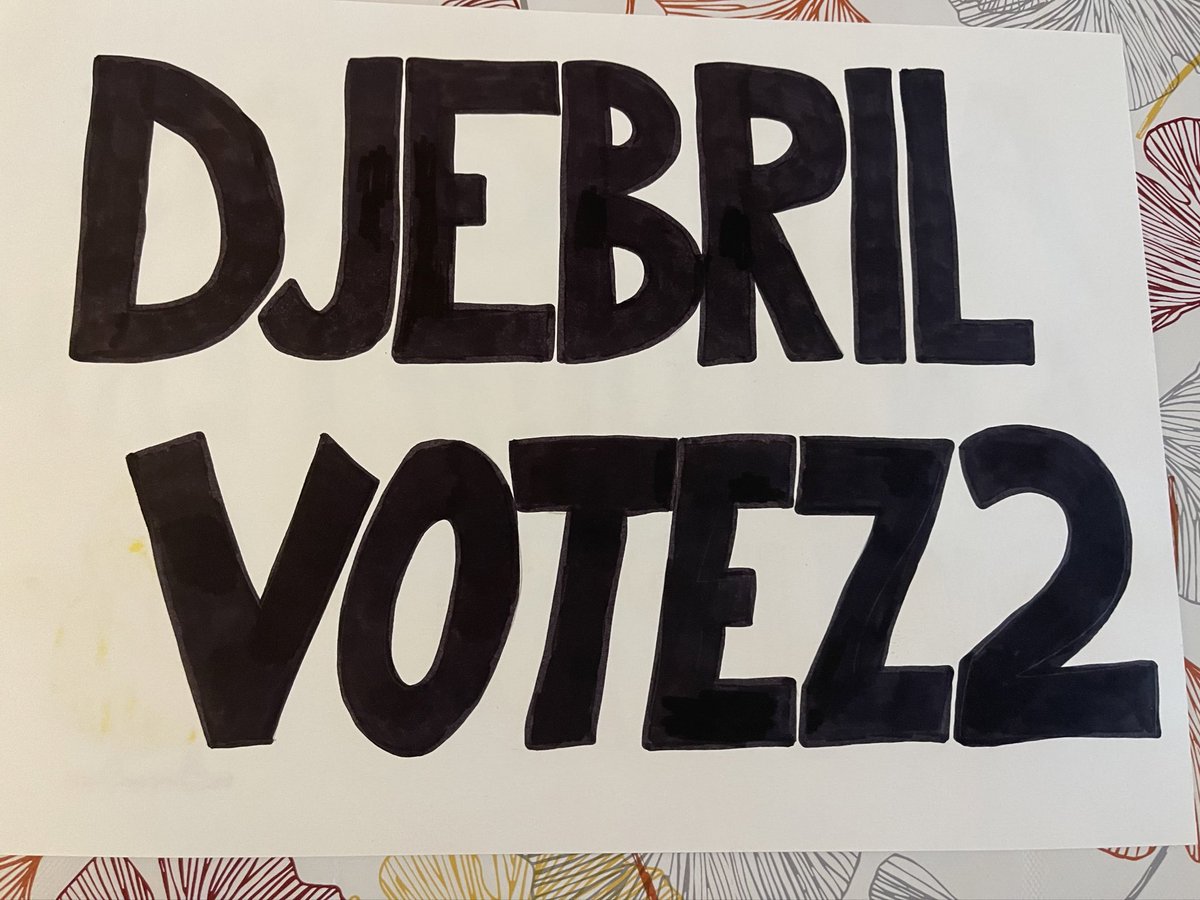 DJEBRIL
VOTEZ2